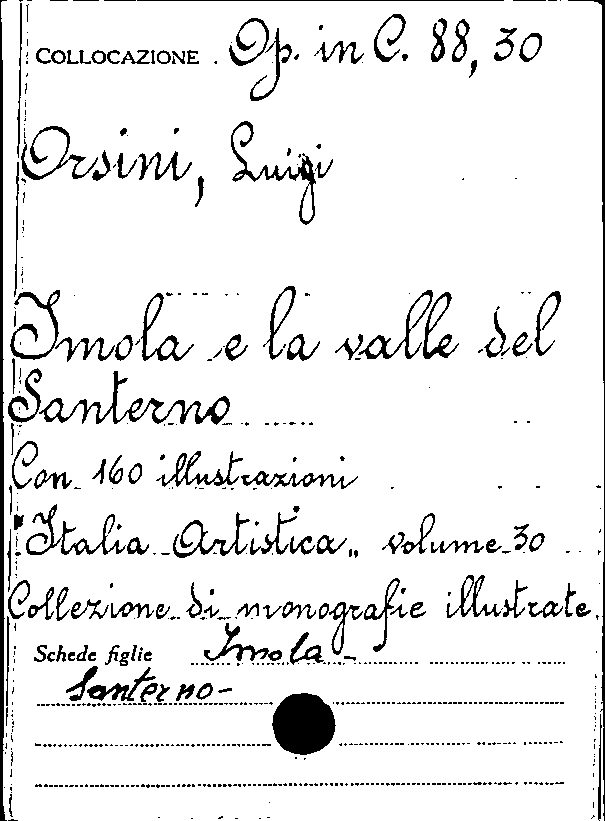 COLLOCAZIONE . Op. in C. 88, 30
Orsini, Luigi
Imola e la valle del
Santerno
Con 160 illustrazioni
"Italia Artistica" volume 30
Collezione di monografie illustrate.
Schede figlie Imola -
Santerno -